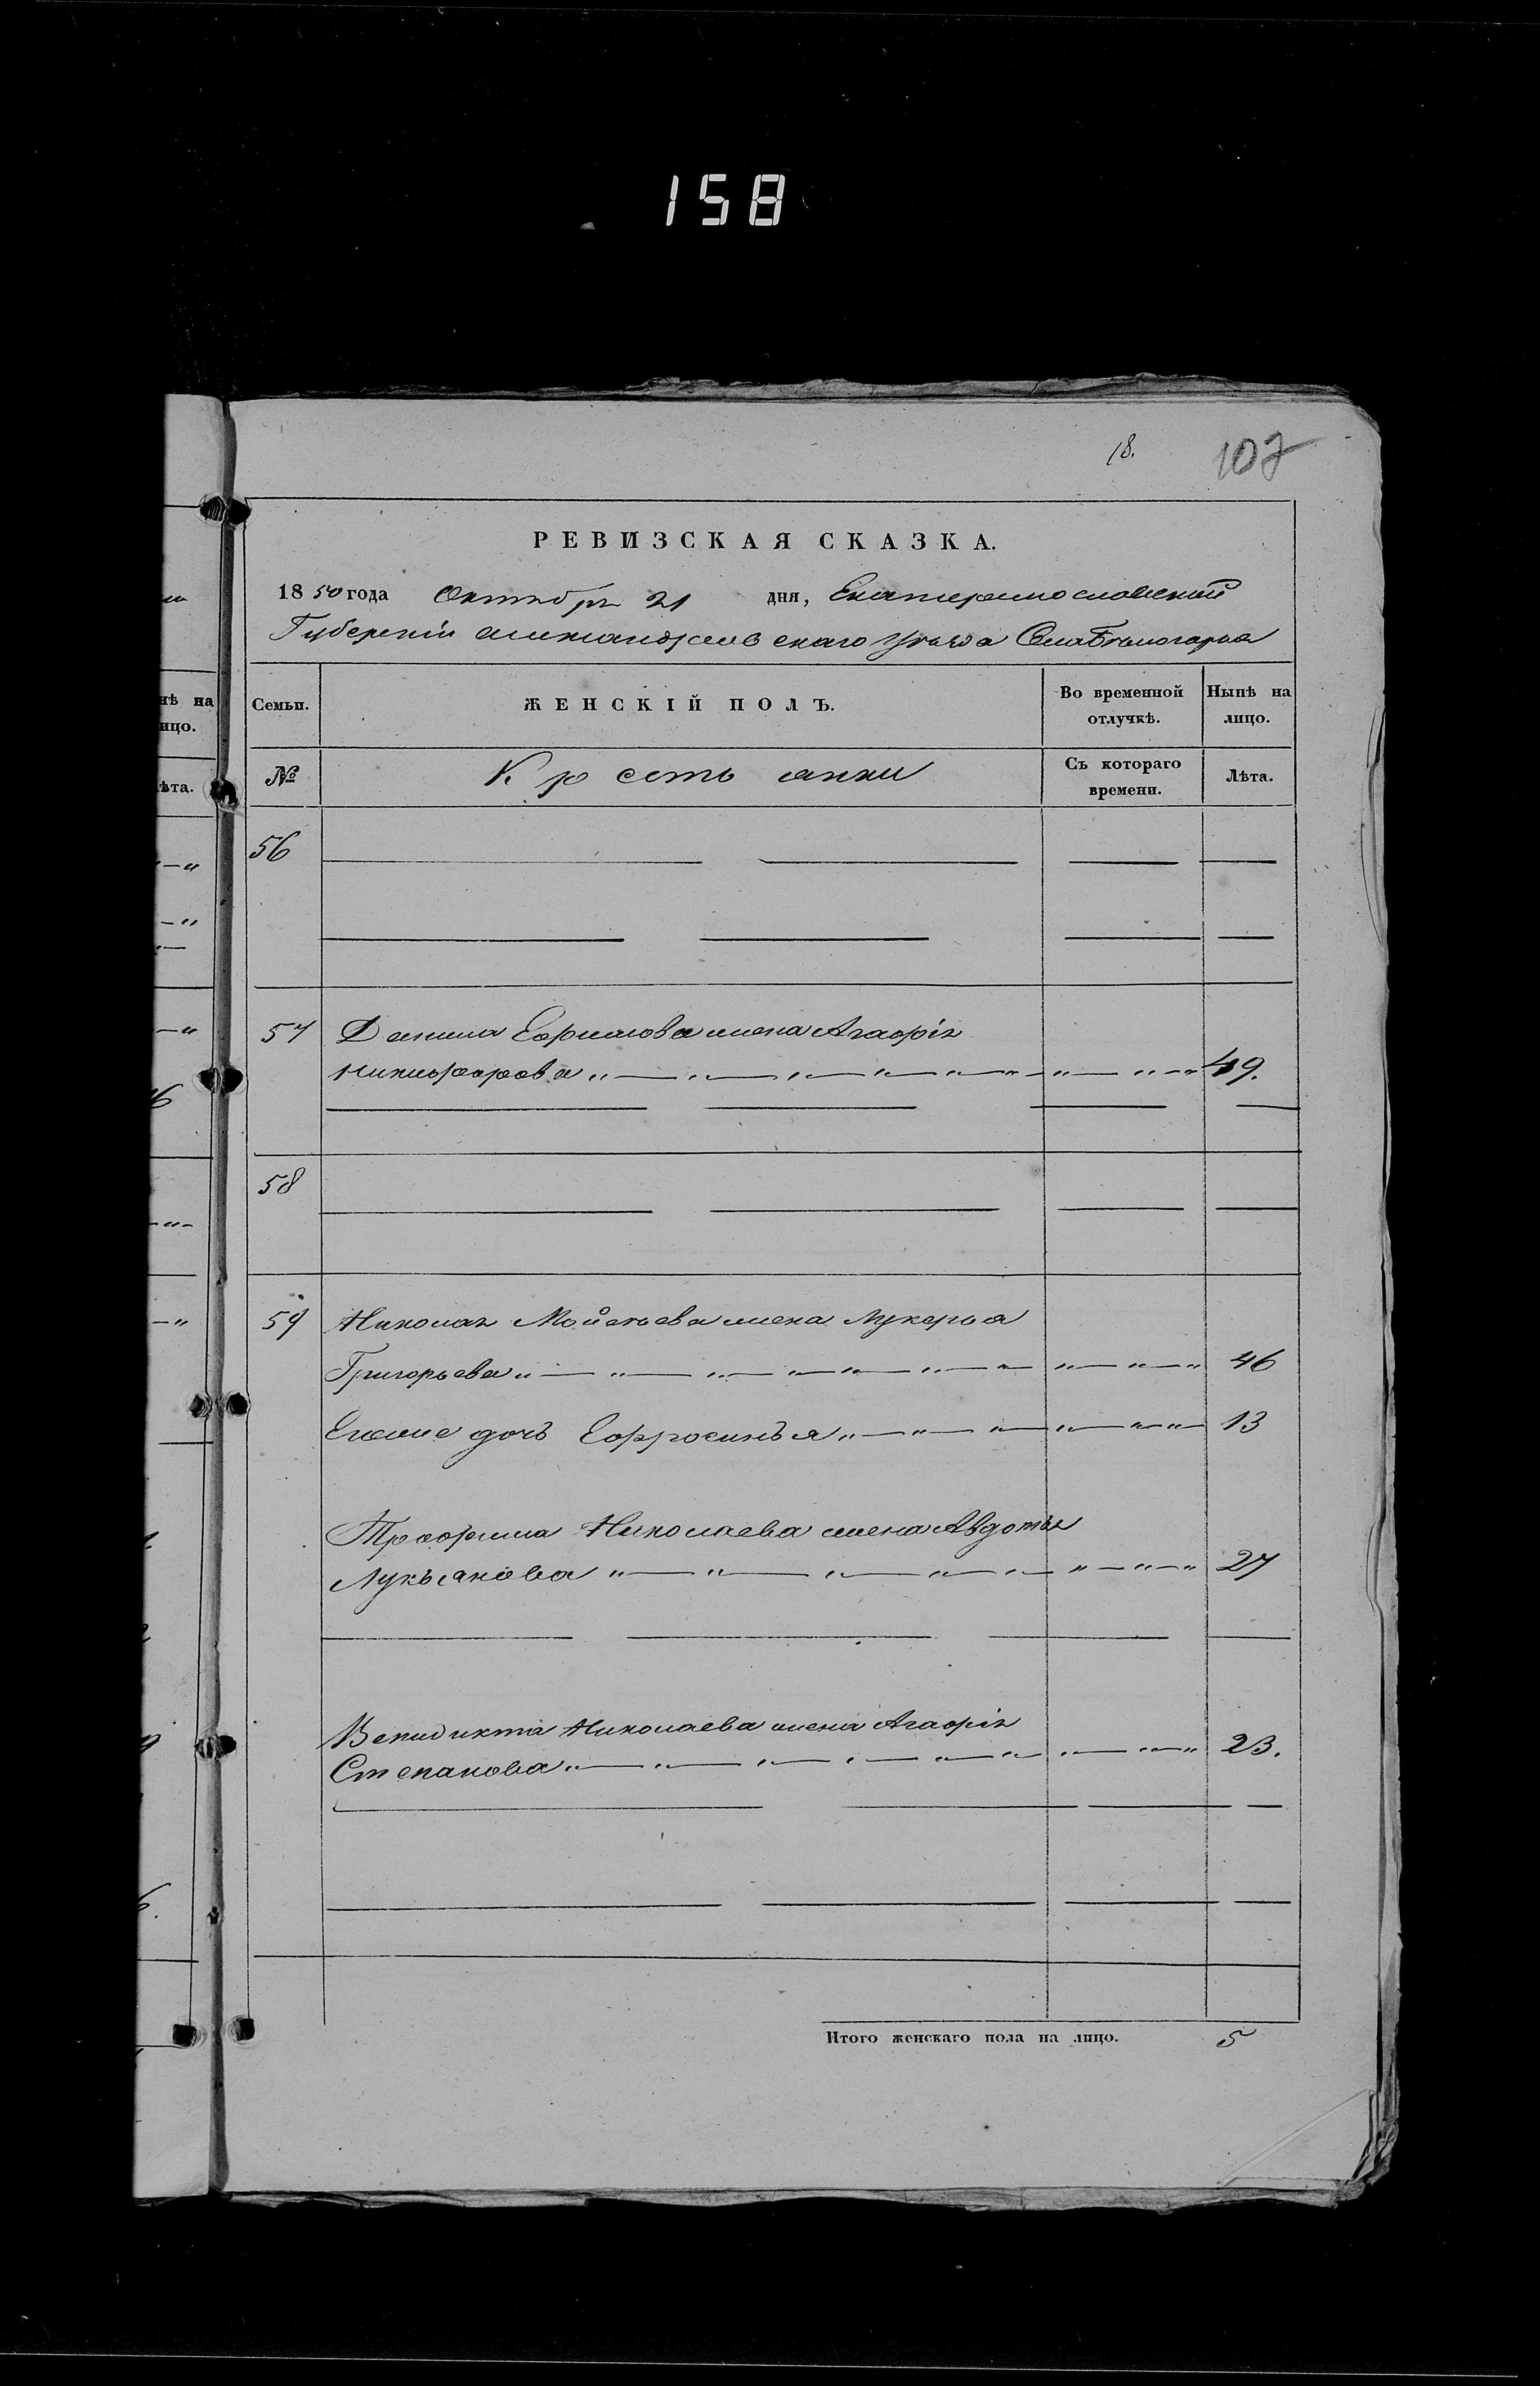 158
18.
107
РЕВИЗСКАЯ СКАЗКА.
1850 года Октября 21 дня, Екатеринославской
Губерніи Александровскаго Уѣзда Села Бѣлогорья
нѣ на
ицо.
ѣта.
Семьи.
ЖЕНСКІЙ ПОЛЪ.
Во временной отлучкѣ.
Нынѣ на лицо.
№
Крестьянки
Съ котораго времени.
Лѣта.
56
57 Данила Ефимова жена Агафія
Никифорова 49.
58
59 Николая Мойсѣева жена Лукерья
Григорьева 46
Егоже дочь Ефросинья 13
Трофима Николаева жена Авдотья
Лукьянова 27
Венидикта Николаева жена Агафія
Степанова 23.
Итого женскаго пола на лицо. 5